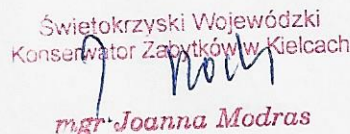 Świętokrzyski Wojewódzki
Konserwator Zabytków w Kielcach
mgr Joanna Modras